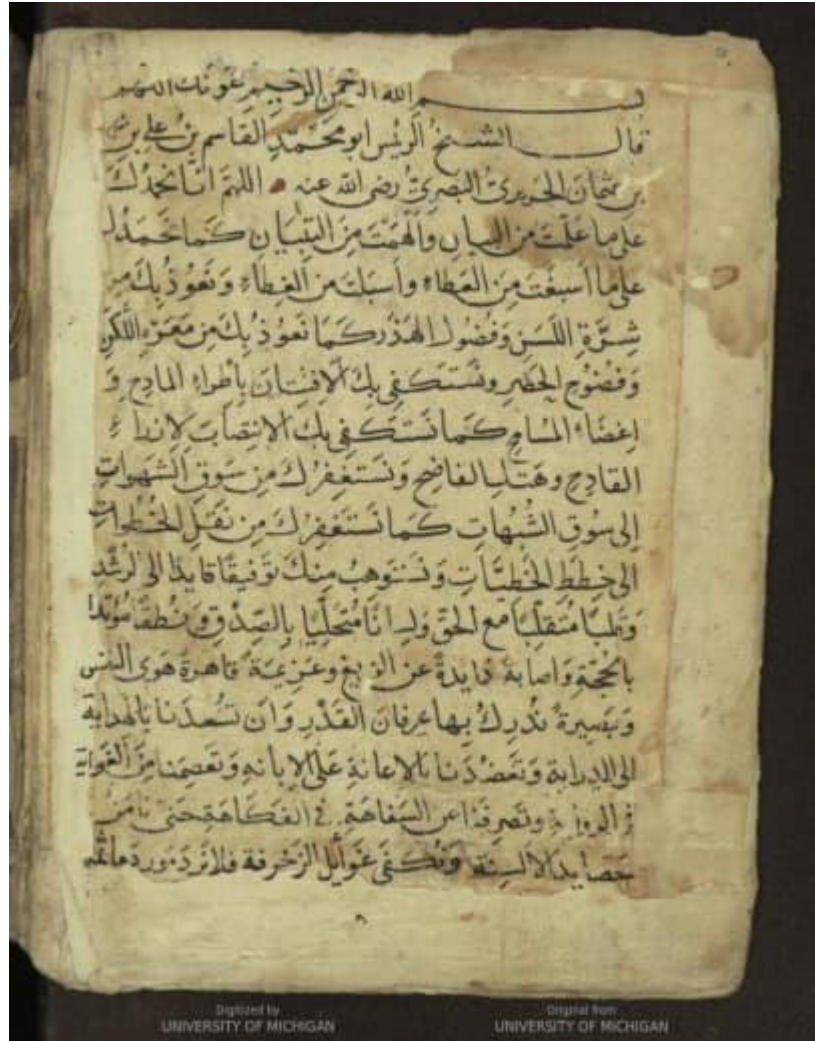 بسم الله الرحمن الرحيم عونك اللهم
قال الشيخ الرئيس ابو محمد القاسم بن علي بن
بن عثمان الحريري البصري رضي الله عنه اللهم انا نحمدك
على ما علمت من البيان والهمت من التبيان كما نحمدك
على ما اسبغت من العطاء واسبلت من الغطاء ونعوذ بك من
شرة اللسن وفضول الهذر كما نعوذ بك من معرة اللكن
وفضوح الحصر ونستكفي بك الافتتان باطراء المادح و
اغضاء المسامح كما نستكفي بك الانتصاب لازراء
القادح وهتك الفاضح ونستغفرك من سوق الشهوات
الى سوق الشبهات كما نستغفرك من نقل الخطوات
الى خطط الخطيات ونستوهب منك توفيقا قايدا الى الرشد
وقلبا متقلبا مع الحق ولسانا متحليا بالصدق ونطقا مؤيدا
بالحجة واصابة ذايدة عن الزيغ وعزيمة قاهرة هوى النفس
وبصيرة ندرك بها عرفان القدر وان تسعدنا بالهداية
الى الدراية وتعضدنا بالاعانة على الابانه وتعصمنا من الغواية
في الرواية وتصرفنا عن السفاهة في الفكاهة حتى نامن
حصايد الالسنة ونكفى غوايل الزخرفة فلا نرد مورد ماثمه
Digitized by
UNIVERSITY OF MICHIGAN
Original from
UNIVERSITY OF MICHIGAN